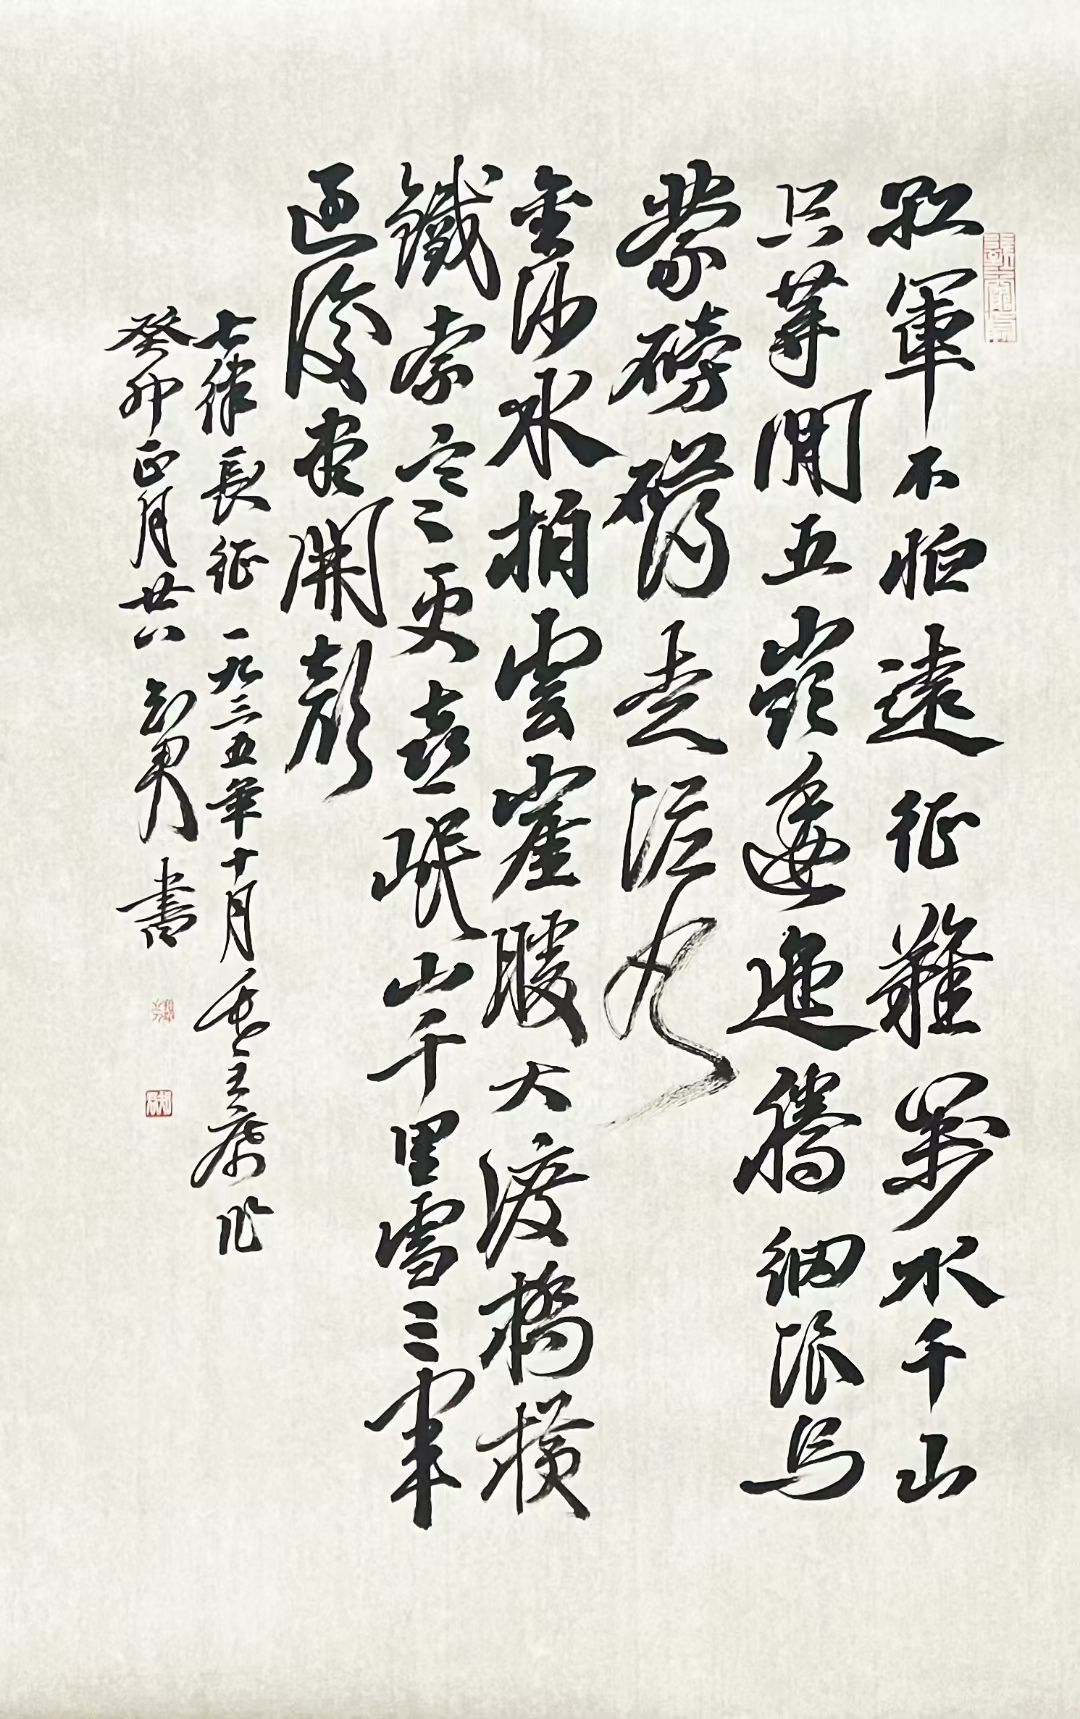 紅軍不怕遠征難萬水千山
只等閒五嶺逶迤騰細浪烏
蒙磅礴走泥丸
金沙水拍雲崖暖大渡橋橫
鐵索寒更喜岷山千里雪三軍
過後盡開顏
七律長征一九三五年十月毛主席作
癸卯正月廿八 書